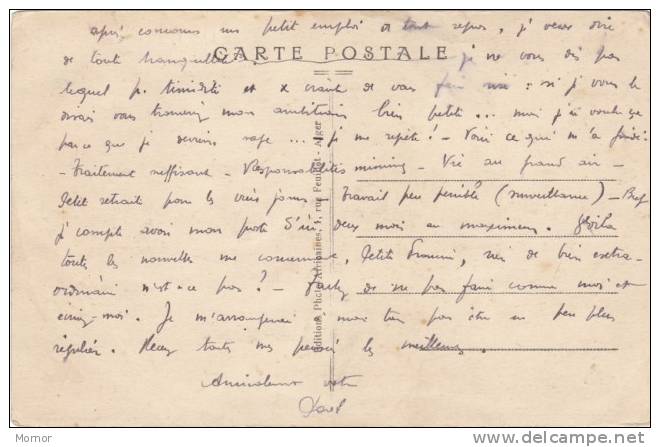 après concours un petit emploi de tout repos, j'y veux dire
de tout
CARTE POSTALE
je ne vous dis pas
lequel p. timidité et x crainte de vous faire rire : si je vous le
disais vous mon ambition bien petite... moi j'ai voulu
parce que je deviens sage... je me répète! - Voici ce qui m'a
- Traitement suffisant - Responsabilités minimes - Vie au grand air -
Petit retrait pour les vieux jours - Travail peu pénible (surveillance) - Bref
j'compte avoir mon poste d'ici deux mois au maximum. Voilà
toutes les nouvelles me concernant, Petite rien de bien extra-
ordinaire n'est-ce pas? - de ne pas faire comme moi et
écrivez-moi. Je m'arrangerai, mais peu plus
régulier. Recevez toutes mes pensées les meilleures.
Amicalement votre
Editions Photo-Africaines, 1, rue Feuillet - Alger
Momor
http://www.delcampe.net